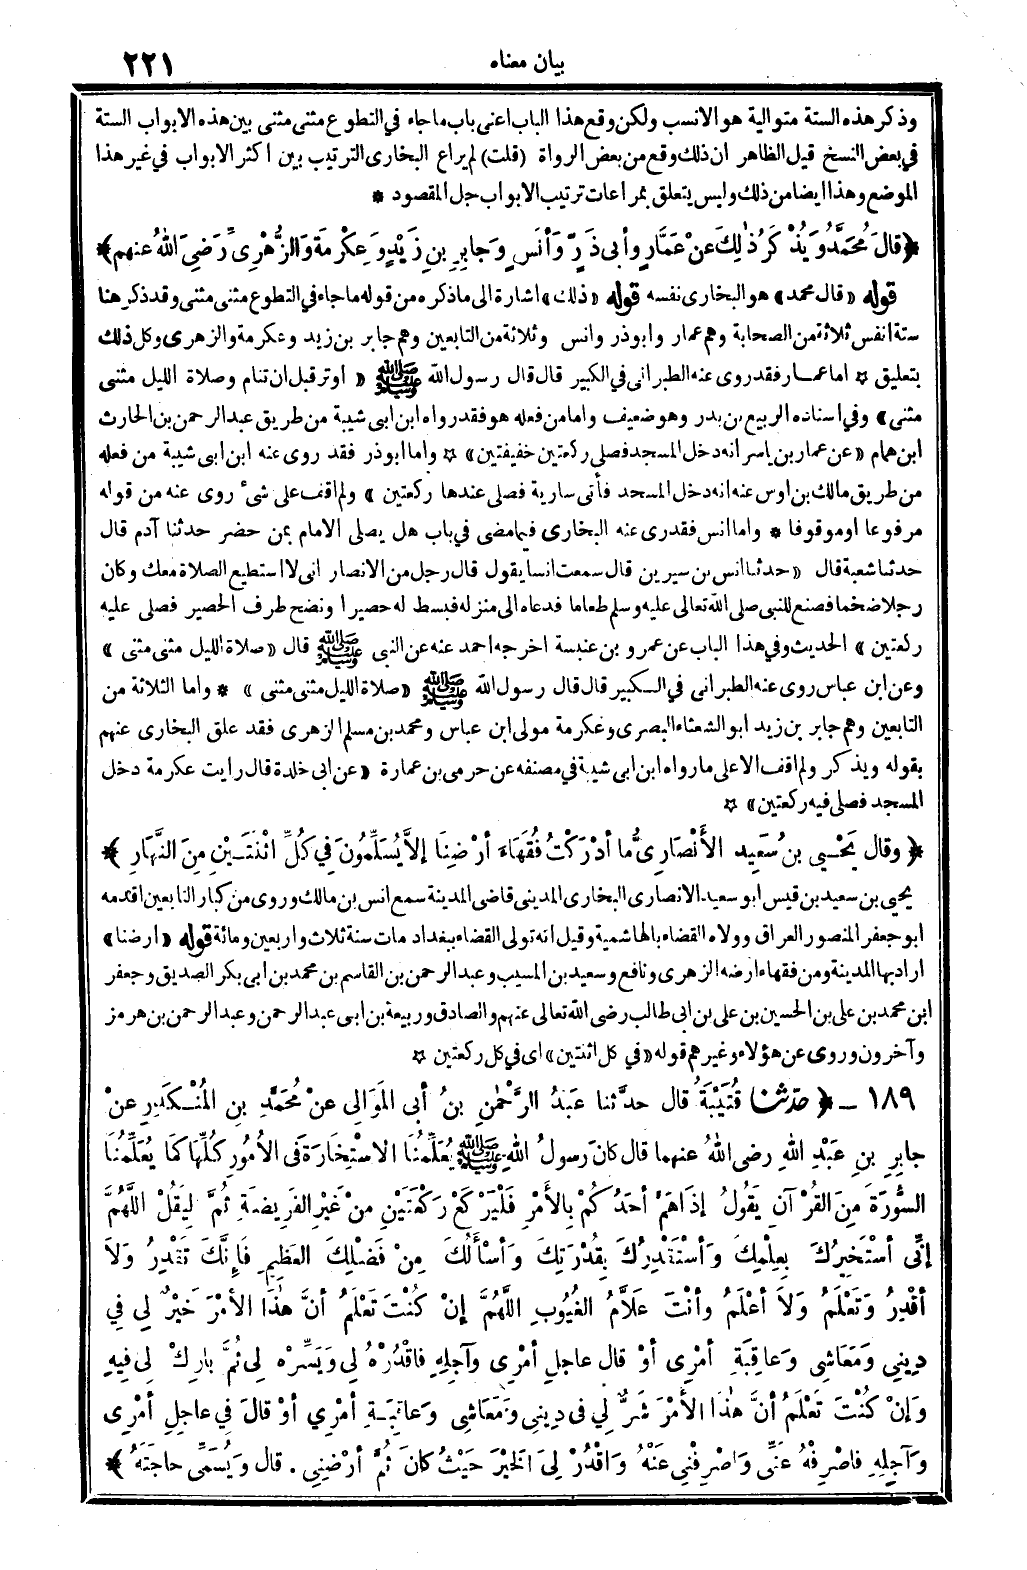 بيان معناه ٢٢١
وذكر هذه الستة متوالية هو الانسب ولكن وقع هذا الباب اعنى باب ما جاء في التطوع مثنى مثنى بين هذه الابواب الستة
في بعض النسخ قيل الظاهر ان ذلك وقع من بعض الرواة (قلت) لم يراع البخارى الترتيب بين اكثر الابواب في غير هذا
الموضع وهذا ايضا من ذلك وليس يتعلق بمراعات ترتيب الابواب جل المقصود *
﴿ قالَ مُحَمَّدٌ وَيُذْكَرُ ذٰلِكَ عنْ عَمَّارٍ وأبى ذَرٍّ وَأنَسٍ وَجابِرِ بنِ زَيْدٍ وَعِكْرِمَةَ والزُّهْرِىِّ رَضِىَ اللهُ عنهم ﴾
قوله «قال محمد» هو البخارى نفسه قوله «ذلك» اشارة الى ما ذكره من قوله ما جاء في التطوع مثنى مثنى وقد ذكر هنا
ستة انفس ثلاثة من الصحابة وهم عمار وابوذر وانس وثلاثة من التابعين وهم جابر بن زيد وعكرمة والزهرى وكل ذلك
بتعليق ☆ اما عمار فقد روى عنه الطبرانى في الكبير قال قال رسول الله ﷺ « اوتر قبل ان تنام وصلاة الليل مثنى
مثنى» وفي اسناده الربيع بن بدر وهو ضعيف واما من فعله هو فقد رواه ابن ابى شيبة من طريق عبد الرحمن بن الحارث
ابن همام «عن عمار بن ياسر انه دخل المسجد فصلى ركعتين خفيفتين» ☆ واما ابوذر فقد روى عنه ابن ابى شيبة من فعله
من طريق مالك بن اوس عنه انه دخل المسجد فأتى سارية فصلى عندها ركعتين» ولم اقف على شئ روى عنه من قوله
مرفوعا او موقوفا * واما انس فقد رى عنه البخارى فيما مضى في باب هل يصلى الامام بمن حضر حدثنا آدم قال
حدثنا شعبة قال «حدثنا انس بن سيرين قال سمعت انسا يقول قال رجل من الانصار انى لا استطيع الصلاة معك وكان
رجلا ضخما فصنع للنبى صلى الله تعالى عليه وسلم طعاما فدعاه الى منزله فبسط له حصيرا ونضح طرف الحصير فصلى عليه
ركعتين» الحديث وفي هذا الباب عن عمرو بن عنبسة اخرجه احمد عنه عن النبى ﷺ قال «صلاة الليل مثنى مثنى»
وعن ابن عباس روى عنه الطبرانى في الكبير قال قال رسول الله ﷺ «صلاة الليل مثنى مثنى» * واما الثلاثة من
التابعين وهم جابر بن زيد ابو الشعثاء البصرى وعكرمة مولى ابن عباس ومحمد بن مسلم الزهرى فقد علق البخارى عنهم
بقوله ويذكر ولم اقف الا على ما رواه ابن ابى شيبة في مصنفه عن حرمى بن عمارة «عن ابى خلدة قال رايت عكرمة دخل
المسجد فصلى فيه ركعتين» ☆
﴿ وقال يَحْيى بن سُعَيد الأَنْصَارِىُّ ما أدْرَكْتُ فُقَهَاءَ أرْضِنَا إلاَّ يُسَلِّمُونَ في كُلِّ اثْنَتَيْنِ مِنَ النَّهارِ ﴾
يحيى بن سعيد بن قيس ابو سعيد الانصارى البخارى المدينى قاضى المدينة سمع انس بن مالك وروى من كبار التابعين اقدمه
ابو جعفر المنصور العراق وولاه القضاء بالهاشمية وقيل انه تولى القضاء ببغداد مات سنة ثلاث واربعين ومائة قوله «ارضنا»
اراد بها المدينة ومن فقهاء ارضه الزهرى ونافع وسعيد بن المسيب وعبد الرحمن بن القاسم بن محمد بن ابى بكر الصديق وجعفر
ابن محمد بن على بن الحسين بن على بن ابى طالب رضى الله تعالى عنهم والصادق وربيعة بن ابى عبد الرحمن وعبد الرحمن بن هرمز
وآخرون وروى عن هؤلاء وغيرهم قوله «في كل اثنتين» اى في كل ركعتين ☆
١٨٩ ـ ﴿ حَدَّثَنَا قُتَيْبَةُ قال حدَّثنا عَبْدُ الرَّحْمٰنِ بنُ أبى المَوَالى عنْ مُحَمَّدِ بنِ المُنْكَدِرِ عنْ
جابِرِ بنِ عَبْدِ اللهِ رضى اللهُ عنهما قال كانَ رسولُ اللهِ ﷺ يُعَلِّمُنَا الاسْتِخَارَةَ في الأُمُورِ كُلِّهَا كَمَا يُعَلِّمُنَا
السُّورَةَ مِنَ القُرْآنِ يَقُولُ إذَا هَمَّ أحَدُكُمْ بِالأَمْرِ فَلْيَرْكَعْ رَكْعَتَيْنِ مِنْ غَيْرِ الفَرِيضَةِ ثُمَّ لِيَقُلْ اللَّهُمَّ
إنِّى أسْتَخِيرُكَ بِعِلْمِكَ وَأسْتَقْدِرُكَ بِقُدْرَتِكَ وَأسْألُكَ مِنْ فَضْلِكَ العَظِيمِ فَإنَّكَ تَقْدِرُ وَلاَ
أقْدِرُ وَتَعْلَمُ وَلاَ أعْلَمُ وأنْتَ عَلاَّمُ الغُيُوبِ اللَّهُمَّ إنْ كُنْتَ تَعْلَمُ أنَّ هٰذَا الأَمْرَ خَيْرٌ لِى فِى
دِينِى وَمَعَاشِى وَعاقِبَةِ أمْرِى أوْ قال عاجِلِ أمْرِى وآجِلِهِ فَاقْدُرْهُ لِى وَيَسِّرْهُ لِى ثُمَّ بارِكْ لِى فِيهِ
وَإنْ كُنْتَ تَعْلَمُ أنَّ هٰذَا الأَمْرَ شَرٌّ لِى فى دِينِى وَمَعَاشِى وَعاقِبَةِ أمْرِي أوْ قالَ فى عاجِلِ أمْرِى
وَآجِلِهِ فاصْرِفْهُ عَنِّى وَاصْرِفْنِى عَنْهُ وَاقْدُرْ لِىَ الخَيْرَ حَيْثُ كانَ ثُمَّ أرْضِنِى . قال وَيُسَمِّى حاجَتَهُ ﴾